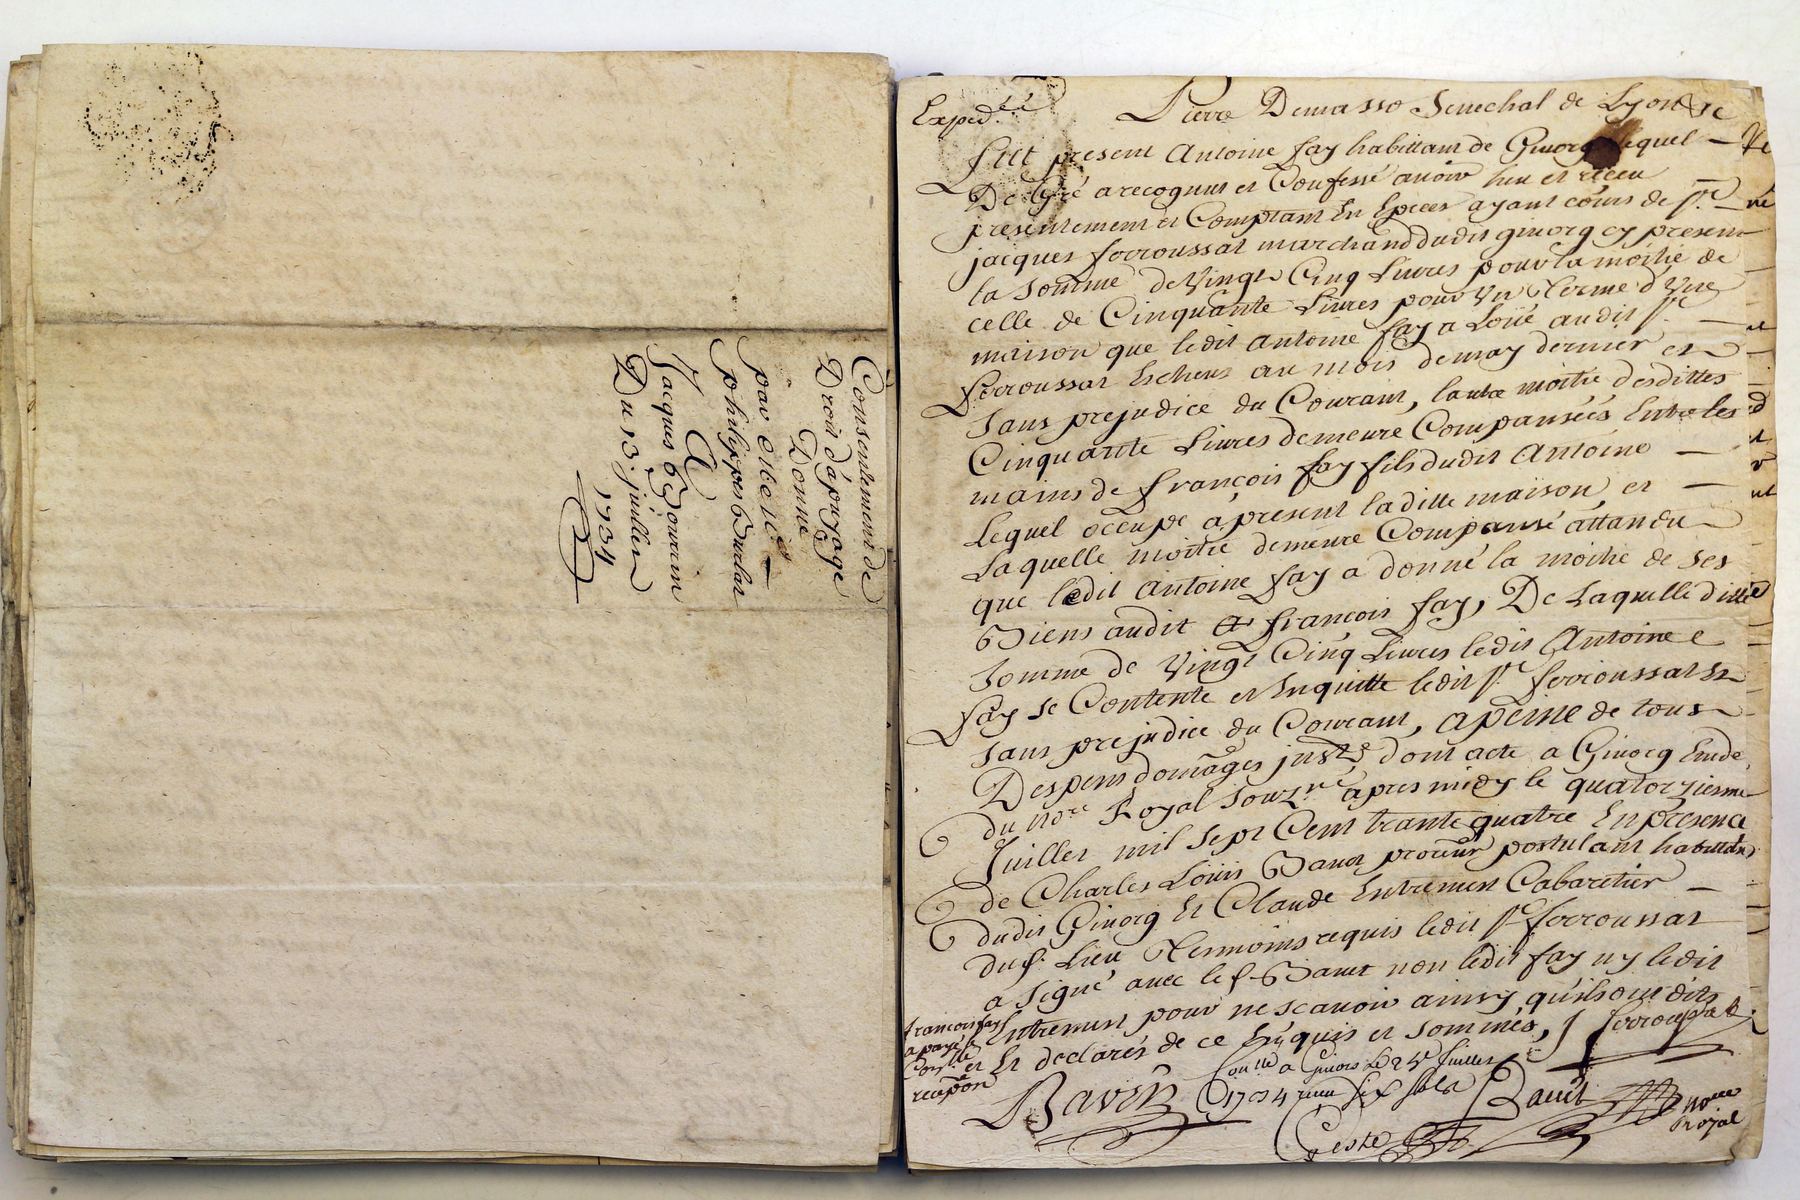 Consentement de
Droit d'apennage
Donné
par
philippes Burlat
A
Jacques Gourein
Du 13. juillet
1734
Exped.
Pierre Demasso Senechal de Lyon
fut present Antoine fay habittant de Givorg lequel
De Gré a recognut et Confessé avoir heu et receu
presentement et Comptant En Epeces ayant cours de sr.
jacques ferroussat marchand dudit givorg cy present
la Somme de Vingt Cinq Livres pour la moitie de
celle de Cinquante Livres pour Un Terme d'Une
maison que ledit Antoine fay a Loüé audit sr.
ferroussat Escheut au mois de may dernier et
Sans prejudice du Courant, lautre moitie desdittes
Cinquante Livres demeure Compansées Entre les
mains de françois fay fils dudit Antoine
Lequel occupe apresent laditte maison, et
Laquelle moitie demeure Compansé attandu
que ledit Antoine fay a donné la moitie de ses
Biens audit françois fay, De Laquelle ditte
Somme de Vingt Cinq Livres ledit Antoine
fay se Contente et Enquitte ledit sr. ferroussat Et
Sans prejudice du Courant, apeine de tous
Despens domages dont acte a Givorg Etude
du nore. Royal Souzne. apres midy le quatorzieme
Juillet mil Sept Cent trante quatre En presence
de Charles Loüis Bavet postulant habittant
dudit Givorg Et Claude Entremen Cabaretier
dud. Lieu Tesmoins requis ledit sr. ferroussat
a Signé avec le s. Bavet non ledit fay ny ledit
Entremen pour ne scavoir ainsy qu'ils ont dits
et Et declarés de ce Enquis et Sommés,
francois fay
a payé
recepon
ferroussat
Conlle a Givors Le 24e Juillet
1734 six sols
Bavet
Bavet
noire
Royal